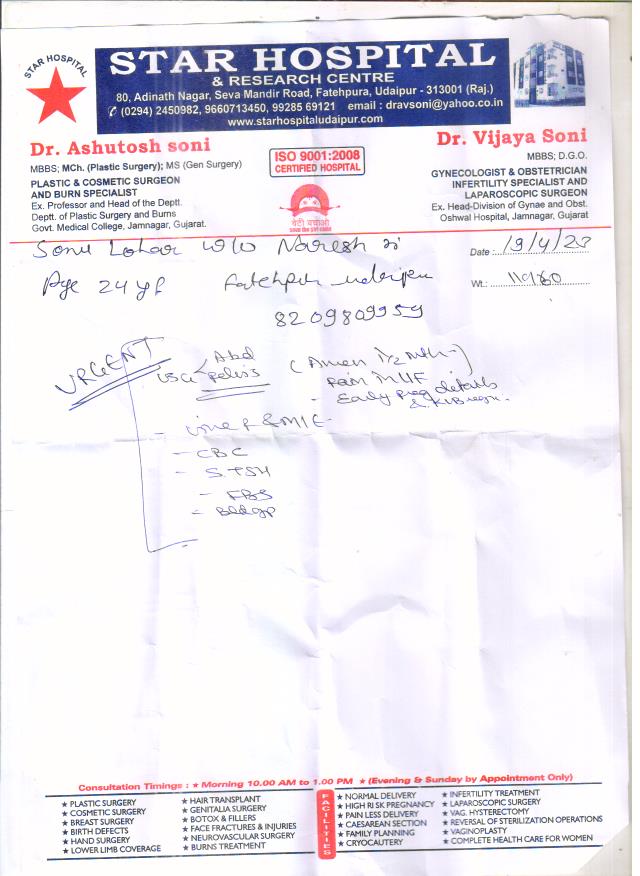 STAR HOSPITAL
STAR HOSPITAL
& RESEARCH CENTRE
80, Adinath Nagar, Seva Mandir Road, Fatehpura, Udaipur - 313001 (Raj.)
(0294) 2450982, 9660713450, 99285 69121 email : dravsoni@yahoo.co.in
www.starhospitaludaipur.com
Dr. Ashutosh soni
MBBS; MCh. (Plastic Surgery); MS (Gen Surgery)
PLASTIC & COSMETIC SURGEON
AND BURN SPECIALIST
Ex. Professor and Head of the Deptt.
Deptt. of Plastic Surgery and Burns
Govt. Medical College, Jamnagar, Gujarat.
ISO 9001:2008
CERTIFIED HOSPITAL
बेटी बचाओ
Dr. Vijaya Soni
MBBS; D.G.O.
GYNECOLOGIST & OBSTETRICIAN
INFERTILITY SPECIALIST AND
LAPAROSCOPIC SURGEON
Ex. Head-Division of Gynae and Obst.
Oshwal Hospital, Jamnagar, Gujarat
Sonu Lohar w/o Naresh Ji
Date : 19/4/23
Age 24 yr Fatehpur
Wt.:
8209809959
URGENT
USG Abd
Pelvis
(Amen 1½ Mth)
Pain
- Early preg details
&
- Urine R & MIC
- CBC
- S. TSH
- FBS
- Bld gp
Consultation Timings : ★ Morning 10.00 AM to 1.00 PM ★ (Evening & Sunday by Appointment Only)
★ PLASTIC SURGERY
★ COSMETIC SURGERY
★ BREAST SURGERY
★ BIRTH DEFECTS
★ HAND SURGERY
★ LOWER LIMB COVERAGE
★ HAIR TRANSPLANT
★ GENITALIA SURGERY
★ BOTOX & FILLERS
★ FACE FRACTURES & INJURIES
★ NEUROVASCULAR SURGERY
★ BURNS TREATMENT
FACILITIES
★ NORMAL DELIVERY
★ HIGH RI SK PREGNANCY
★ PAIN LESS DELIVERY
★ CAESAREAN SECTION
★ FAMILY PLANNING
★ CRYOCAUTERY
★ INFERTILITY TREATMENT
★ LAPAROSCOPIC SURGERY
★ VAG. HYSTERECTOMY
★ REVERSAL OF STERILIZATION OPERATIONS
★ VAGINOPLASTY
★ COMPLETE HEALTH CARE FOR WOMEN